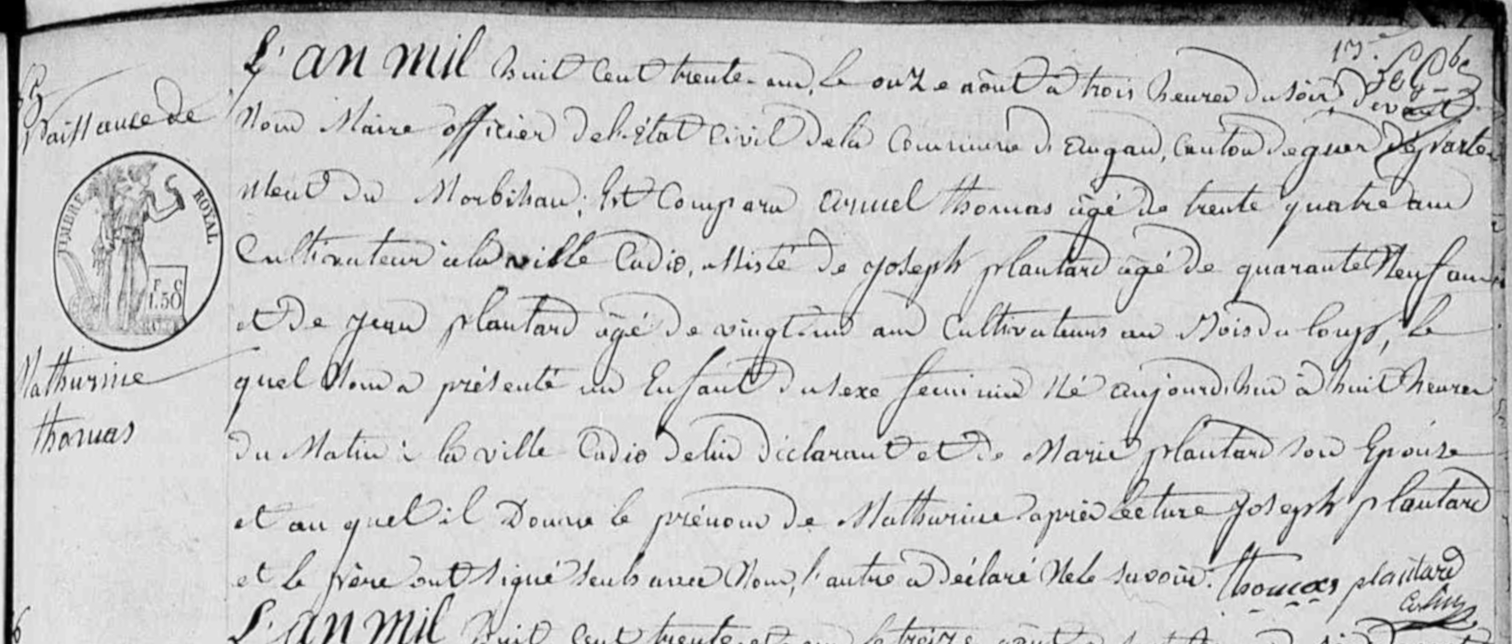 13.
L'an mil huit cent trente-un, le onze août à trois heures du soir, devant
Naissance de
Nous Maire officier de l'État Civil de la Commune d'augan, canton de guer départe-
TIMBRE ROYAL
ment du Morbihan; Est Comparu armel thomas âgé de trente quatre ans
Cultivateur à la ville Cadio, assisté de joseph plantard âgé de quarante Neuf ans
F. C
1.50
et de jean plantard âgé de vingt-un ans Cultivateurs au Bois du loup, le
Mathurine
quel Nous a présenté un Enfant du sexe féminin Né aujourd'hui à huit heures
thomas
du Matin à la ville Cadio de lui déclarant et de Marie plantard son Épouse
et au quel il Donne le prénom de Mathurine après lecture joseph plantard
et le père ont signé seuls avec Nous, l'autre a déclaré Ne le savoir. thomas plantard
L'an mil huit cent trente et un le treize août